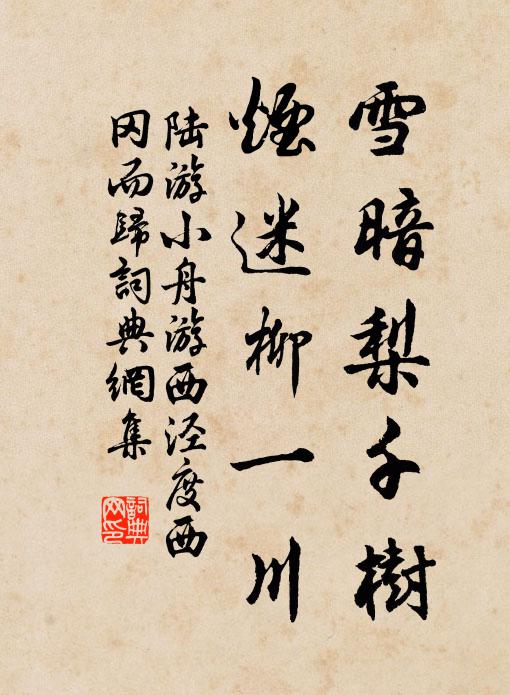 雪暗梨千樹
煙迷柳一川
陆游小舟游西泾度西
冈而歸詞典網集
詞典網印